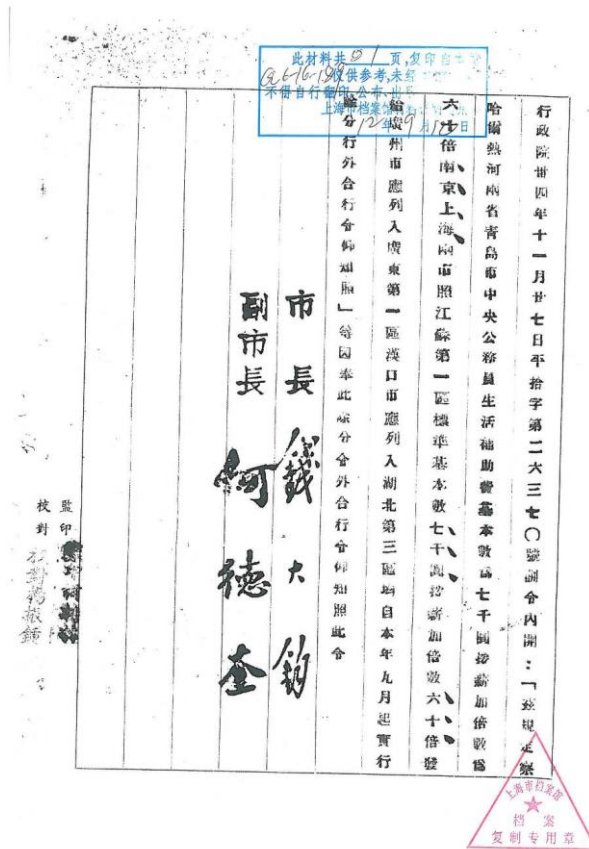 此材料共 01 页,复印自
仅供参考,未经
不得自行翻印、公布、出
上海市档案馆
12年9月10日
行政院卅四年十一月廿七日平拾字第二六三七〇號訓令內開：「茲規定察
哈爾熱河兩省青島市中央公務員生活補助費基本數爲七千圓按薪加倍數爲
六十倍南京上海兩市照江蘇第一區標準基本數七千圓按薪加倍數六十倍發
給廣州市應列入廣東第一區漢口市應列入湖北第三區均自本年九月起實行
除分行外合行令仰知照」等因奉此除分令外合行令仰知照此令
市長 錢大鈞
副市長 何德奎
監印
校對
上海市档案馆
档案
复制专用章